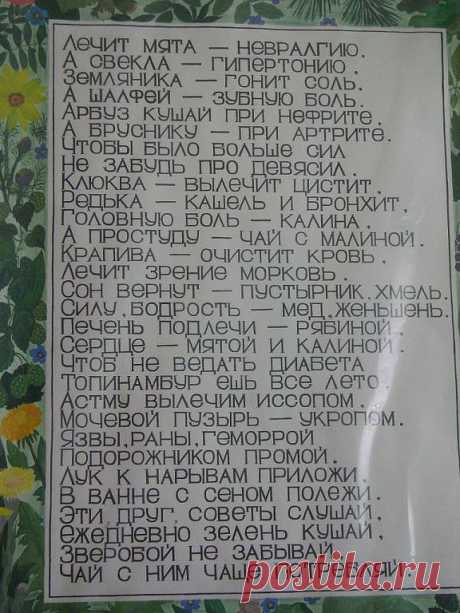 Лечит мята — невралгию.
А свекла — гипертонию.
Земляника — гонит соль.
А шалфей — зубную боль.
Арбуз кушай при нефрите.
А бруснику — при артрите.
Чтобы было больше сил
Не забудь про девясил.
Клюква — вылечит цистит.
Редька — кашель и бронхит,
Головную боль — калина.
А простуду — чай с малиной.
Крапива — очистит кровь.
Лечит зрение морковь.
Сон вернут — пустырник, хмель.
Силу, бодрость — мед, женьшень.
Печень подлечи — рябиной.
Сердце — мятой и калиной.
Чтоб не ведать диабета
Топинамбур ешь все лето.
Астму вылечим иссопом.
Мочевой пузырь — укропом.
Язвы, раны, геморрой
Подорожником промой.
Лук к нарывам приложи.
В ванне с сеном полежи.
Эти, друг, советы слушай,
Ежедневно зелень кушай,
Зверобой не забывай
Чай с ним чаще потребляй.
postila.ru